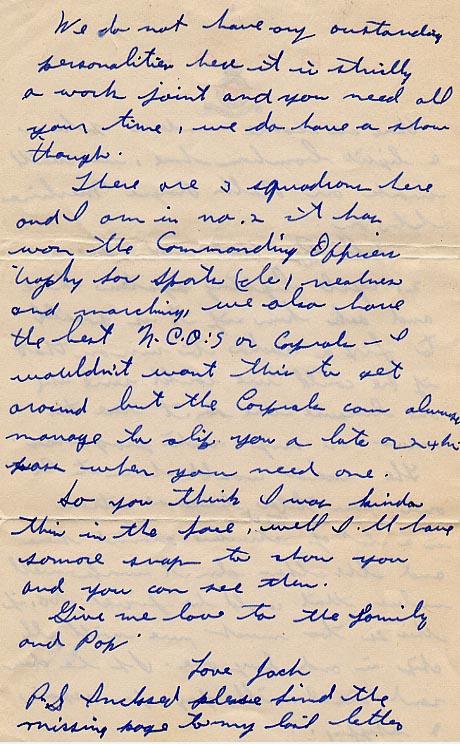 We do not have any oustanding
personalities here it is strictly
a work joint and you need all
your time, we do have a show
though.
There are 3 squadrons here
and I am in no. 2 it has
won the Commanding Officers
trophy for sports (etc), neatness
and marching, we also have
the best N.C.O:S or Corprals – I
wouldn't want this to get
around but the Corprals can always
manage to slip you a late or extra
pass when you need one.
So you think I was kinda
thin in the face, well I'll have
somore snaps to show you
and you can see then.
Give me love to the family
and Pop
Love Jack
P.S Inclosed please find the
missing page to my last letter